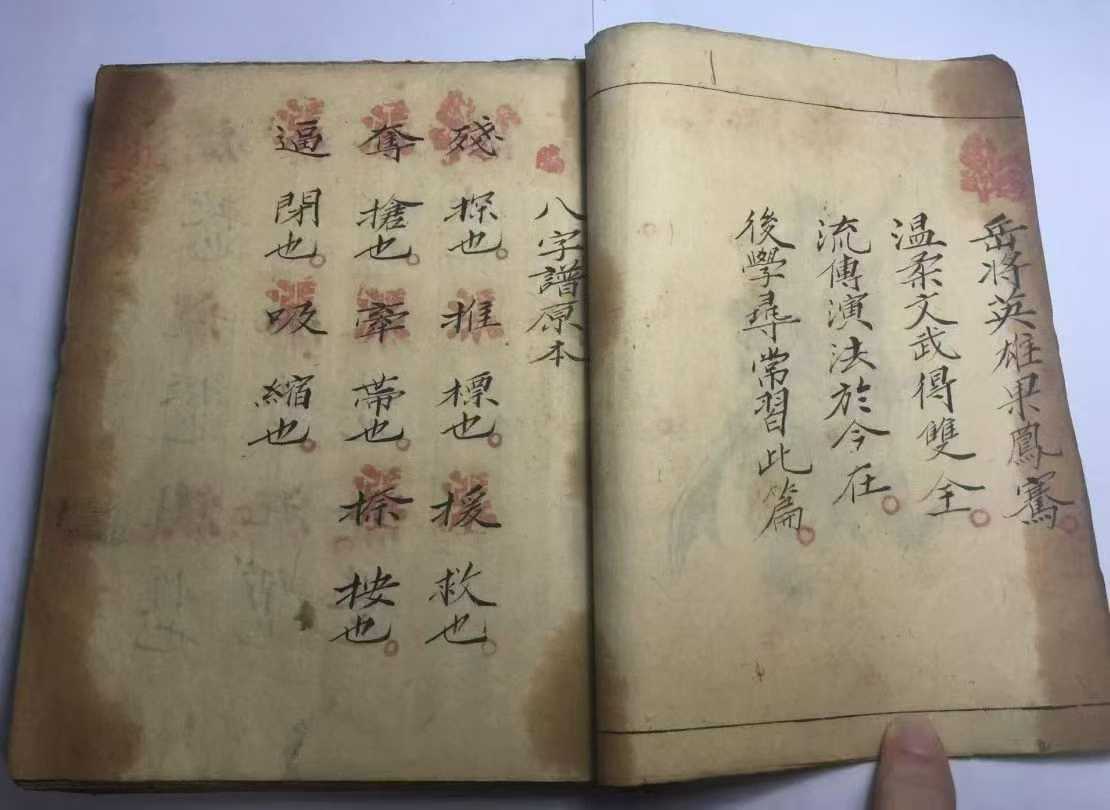 岳將英雄果鳳騫
温柔文武得雙全
流傳演法於今在
後學尋常習此篇
八字譜原本
殘 探也 推 標也 援 救也
奪 搶也 牽 帶也 捺 按也
逼 閉也 吸 縮也